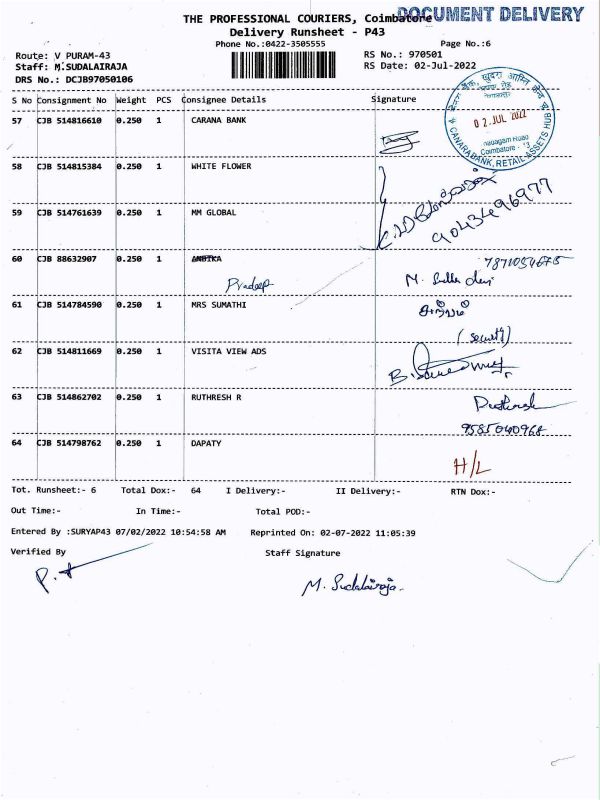 THE PROFESSIONAL COURIERS, Coimbatore DOCUMENT DELIVERY
Delivery Runsheet - P43
Phone No.:0422-3505555 Page No.:6
Route: V PURAM-43 RS No.: 970501
Staff: M.SUDALAIRAJA RS Date: 02-Jul-2022
DRS No.: DCJB97050106
S No Consignment No Weight PCS Consignee Details Signature
57 CJB 514816610 0.250 1 CARANA BANK
02 JUL 2022
Coimbatore - 13
CANARA BANK, RETAIL ASSETS HUB
58 CJB 514815384 0.250 1 WHITE FLOWER
59 CJB 514761639 0.250 1 MM GLOBAL
9043496977
60 CJB 88632907 0.250 1 AMBIKA 7871054675
Pradeep M.
61 CJB 514784590 0.250 1 MRS SUMATHI
(security)
62 CJB 514811669 0.250 1 VISITA VIEW ADS
63 CJB 514862702 0.250 1 RUTHRESH R
9585040968
64 CJB 514798762 0.250 1 DAPATY
H/L
Tot. Runsheet:- 6 Total Dox:- 64 I Delivery:- II Delivery:- RTN Dox:-
Out Time:- In Time:- Total POD:-
Entered By :SURYAP43 07/02/2022 10:54:58 AM Reprinted On: 02-07-2022 11:05:39
Verified By Staff Signature
M. Sudalairaja.